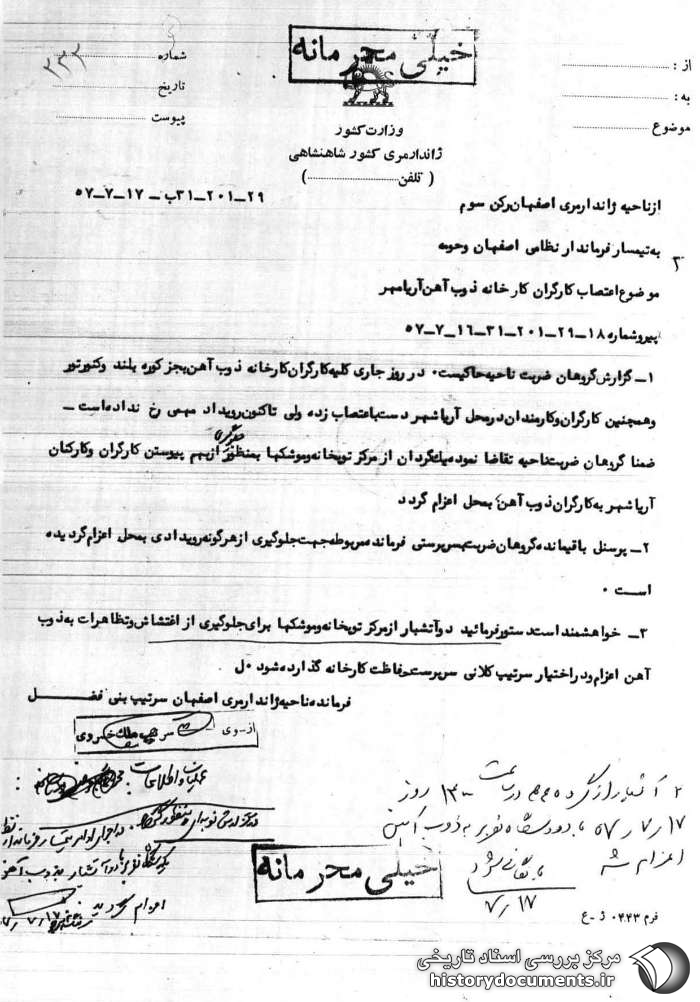 خیلی محرمانه
شماره ۲۳۲
تاریخ
پیوست
از :
به :
موضوع
وزارت کشور
ژاندارمری کشور شاهنشاهی
( تلفن )
ازناحیه ژاندارمری اصفهان رکن سوم ۲۹_۲۰۱_۳۱ب _ ۱۷_۷_۵۷
به تیمسار فرماندار نظامی اصفهان وحومه
موضوع اعتصاب کارگران کارخانه ذوب آهن آریامهر
پیروشماره ۱۸_۲۹_۲۰۱_۳۱_۱۶_۷_۵۷
۱_ گزارش گروهان ضربت ناحیه حاکیست۰ در روز جاری کلیه کارگران کارخانه ذوب آهن بجز کوره بلند وکنورتور
وهمچنین کارگران وکارمندان درمحل آریاشهر دست باعتصاب زده ولی تاکنون رویداد مهمی رخ نداده است _
ضمنا گروهان ضربت ناحیه تقاضا نموده یک گردان از مرکز توپخانه وموشکها بمنظور جلوگیری ازبهم پیوستن کارگران وکارکنان
آریاشهر به کارگران ذوب آهن بمحل اعزام گردد
۲_ پرسنل باقیمانده گروهان ضربت بسرپرستی فرمانده مربوطه جهت جلوگیری از هرگونه رویدادی بمحل اعزام گردیده
است ۰
۳_ خواهشمند است دستور فرمائید دوآتشبار از مرکز توپخانه وموشکها برای جلوگیری از اغتشاش وتظاهرات به ذوب
آهن اعزام ودراختیار سرتیپ کلانی سرپرست حفاظت کارخانه گذارده شود ۰ل
فرمانده ناحیه ژاندارمری اصفهان سرتیپ بنی فضل
از_وی _ سرتیپ ملک خسروی
عملیات و اطلاعات :
۲ آتشبار از گروه در ساعت ۱۳۰۰ روز
۵۷/۷/۱۷ با دودستگاه نفربر به ذوب آهن
اعزام شد
بایگانی شود
۷/۱۷
یکدستگاه نفربر با دو آتشبار به ذوب آهن
اعزام گردید
۷/۱۷
خیلی محرمانه
فرم ۰۴۴۳ ژ_ع
مرکز بررسی اسناد تاریخی
historydocuments.ir